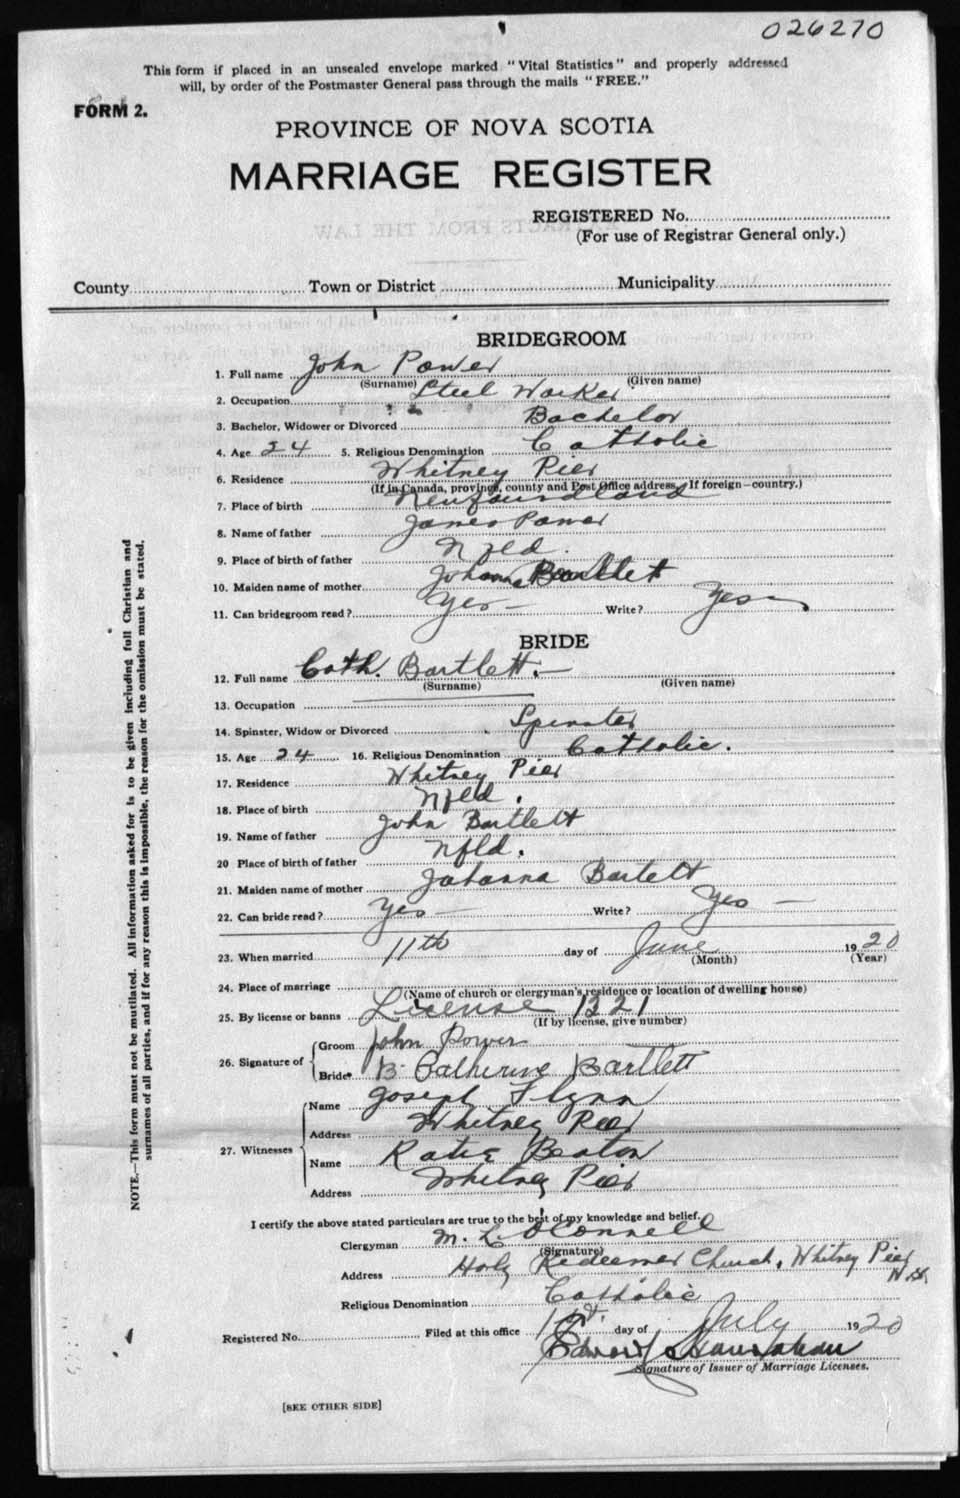 026270
This form if placed in an unsealed envelope marked "Vital Statistics" and properly addressed
will, by order of the Postmaster General pass through the mails "FREE."
FORM 2.
PROVINCE OF NOVA SCOTIA
MARRIAGE REGISTER
REGISTERED No.
(For use of Registrar General only.)
County Town or District Municipality
BRIDEGROOM
1. Full name John Power
(Surname) (Given name)
2. Occupation Steel Worker
3. Bachelor, Widower or Divorced Bachelor
4. Age 24 5. Religious Denomination Catholic
6. Residence Whitney Pier
(If in Canada, province, county and Post Office address. If foreign—country.)
7. Place of birth Newfoundland
8. Name of father James Power
9. Place of birth of father Nfld.
10. Maiden name of mother Johanna Bartlett
11. Can bridegroom read? Yes — Write? Yes —
BRIDE
12. Full name Cath. Bartlett. —
(Surname) (Given name)
13. Occupation
14. Spinster, Widow or Divorced Spinster
15. Age 24 16. Religious Denomination Catholic.
17. Residence Whitney Pier
18. Place of birth Nfld.
19. Name of father John Bartlett
20 Place of birth of father Nfld.
21. Maiden name of mother Johanna Bartlett
22. Can bride read? Yes — Write? Yes —
23. When married 11th day of June 1920
(Month) (Year)
24. Place of marriage
(Name of church or clergyman's residence or location of dwelling house)
25. By license or banns License 1321
(If by license, give number)
26. Signature of Groom John Power
Bride B. Catherine Bartlett
27. Witnesses Name Joseph Flynn
Address Whitney Pier
Name Katie Beaton
Address Whitney Pier
I certify the above stated particulars are true to the best of my knowledge and belief.
Clergyman M. L. O'Connell
(Signature)
Address Holy Redeemer Church, Whitney Pier
N.S.
Religious Denomination Catholic
Registered No. Filed at this office day of July 1920
Signature of Issuer of Marriage Licenses.
[SEE OTHER SIDE]
NOTE.—This form must not be mutilated. All information asked for is to be given including full Christian and
surnames of all parties, and if for any reason this is impossible, the reason for the omission must be stated.